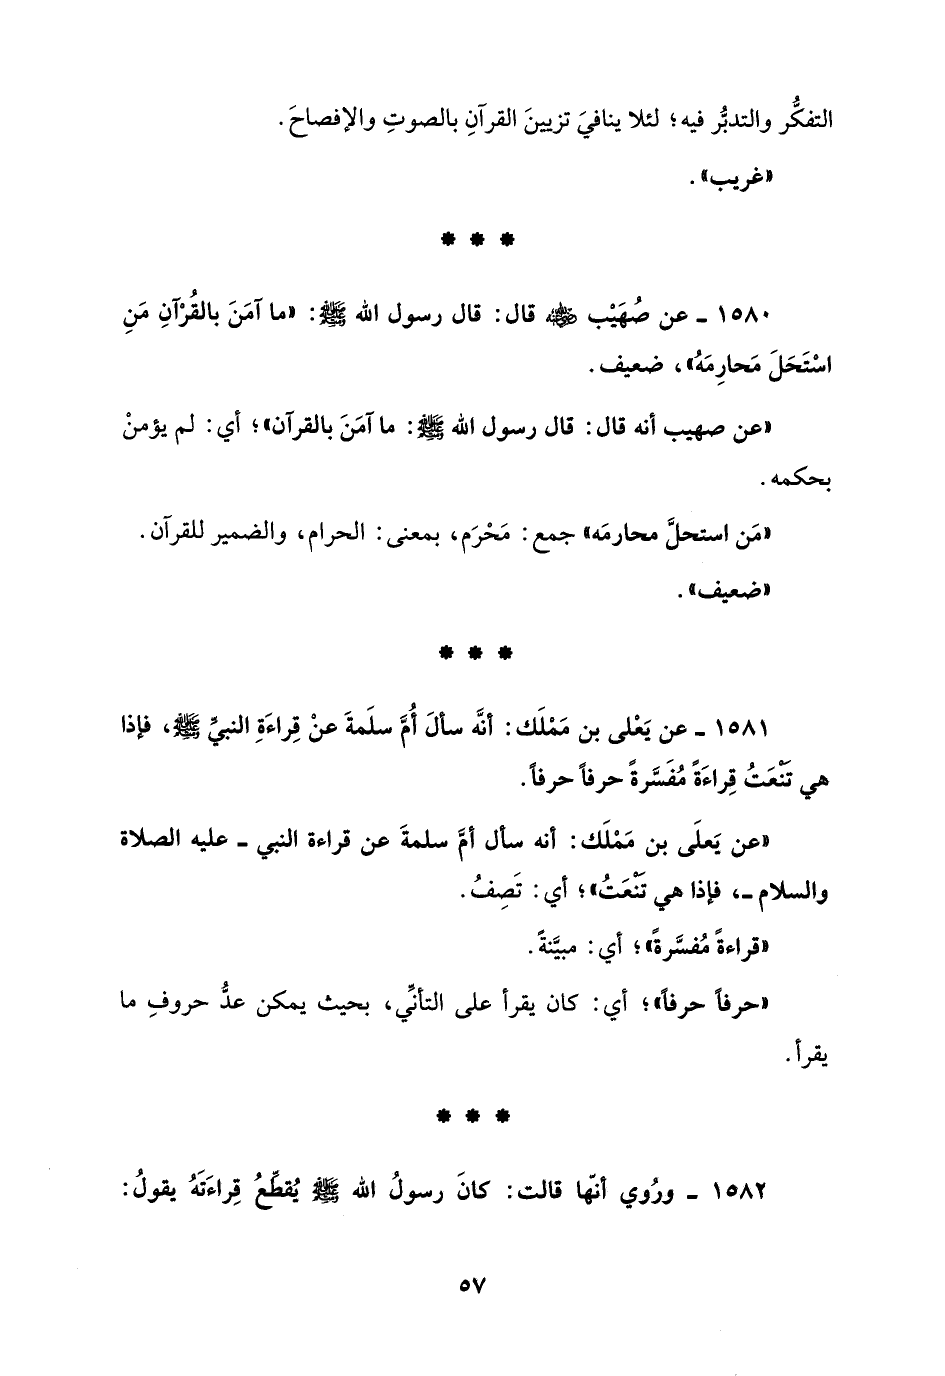 التفكُّر والتدبُّر فيه؛ لئلا ينافيَ تزيينَ القرآنِ بالصوتِ والإفصاحَ.
«غريب».
* * *
١٥٨٠ ـ عن صُهَيْب رضي الله عنه قال: قال رسول الله ﷺ: «ما آمَنَ بالقُرْآنِ مَنِ
اسْتَحَلَ مَحارِمَهُ»، ضعيف.
«عن صهيب أنه قال: قال رسول الله ﷺ: ما آمَنَ بالقرآن»؛ أي: لم يؤمنْ
بحكمه.
«مَن استحلَّ محارمَه» جمع: مَحْرَم، بمعنى: الحرام، والضمير للقرآن.
«ضعيف».
* * *
١٥٨١ ـ عن يَعْلى بن مَمْلَك: أنَّه سألَ أُمَّ سلَمةَ عنْ قِراءَةِ النبيِّ ﷺ، فإذا
هي تَنْعَتُ قِراءَةً مُفَسَّرةً حرفاً حرفاً.
«عن يَعلَى بن مَمْلَك: أنه سأل أمَّ سلمةَ عن قراءة النبي ـ عليه الصلاة
والسلام ـ، فإذا هي تَنْعَتُ»؛ أي: تَصِفُ.
«قراءةً مُفسَّرةً»؛ أي: مبيَّنةً.
«حرفاً حرفاً»؛ أي: كان يقرأ على التأنِّي، بحيث يمكن عدُّ حروفِ ما
يقرأ.
* * *
١٥٨٢ ـ ورُوي أنّها قالت: كانَ رسولُ الله ﷺ يُقطِّعُ قِراءَتَهُ يقولُ:
٥٧